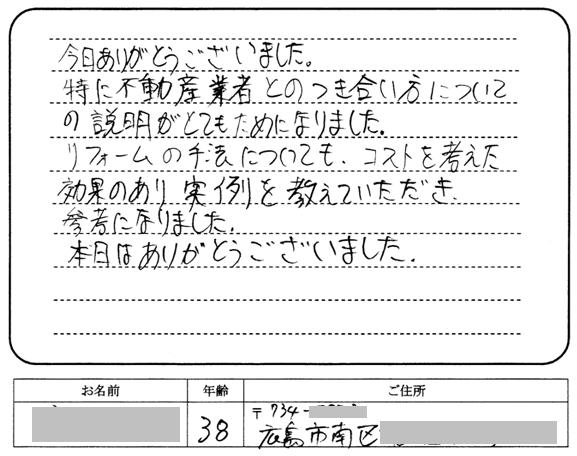 今日ありがとうございました。
特に不動産業者とのつき合い方について
の説明がとてもためになりました。
リフォームの手法についても、コストを考えた
効果のあり実例を教えていただき、
参考になりました。
本日はありがとうございました。
お名前 年齢 ご住所
38
〒734-
広島市南区